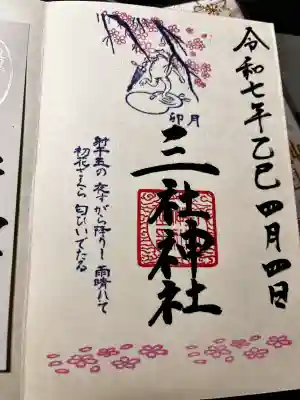 令和七年乙巳四月四日
卯月
三社神社
夜すがら降りし雨晴れて
初花さくら匂ひいでたる